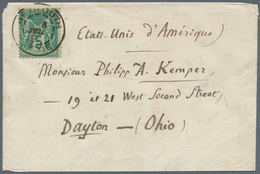 Etats-Unis d'Amérique)
Monsieur Philipp A. Kemper,
— 19 et 21 West Second Street,
Dayton — (Ohio)